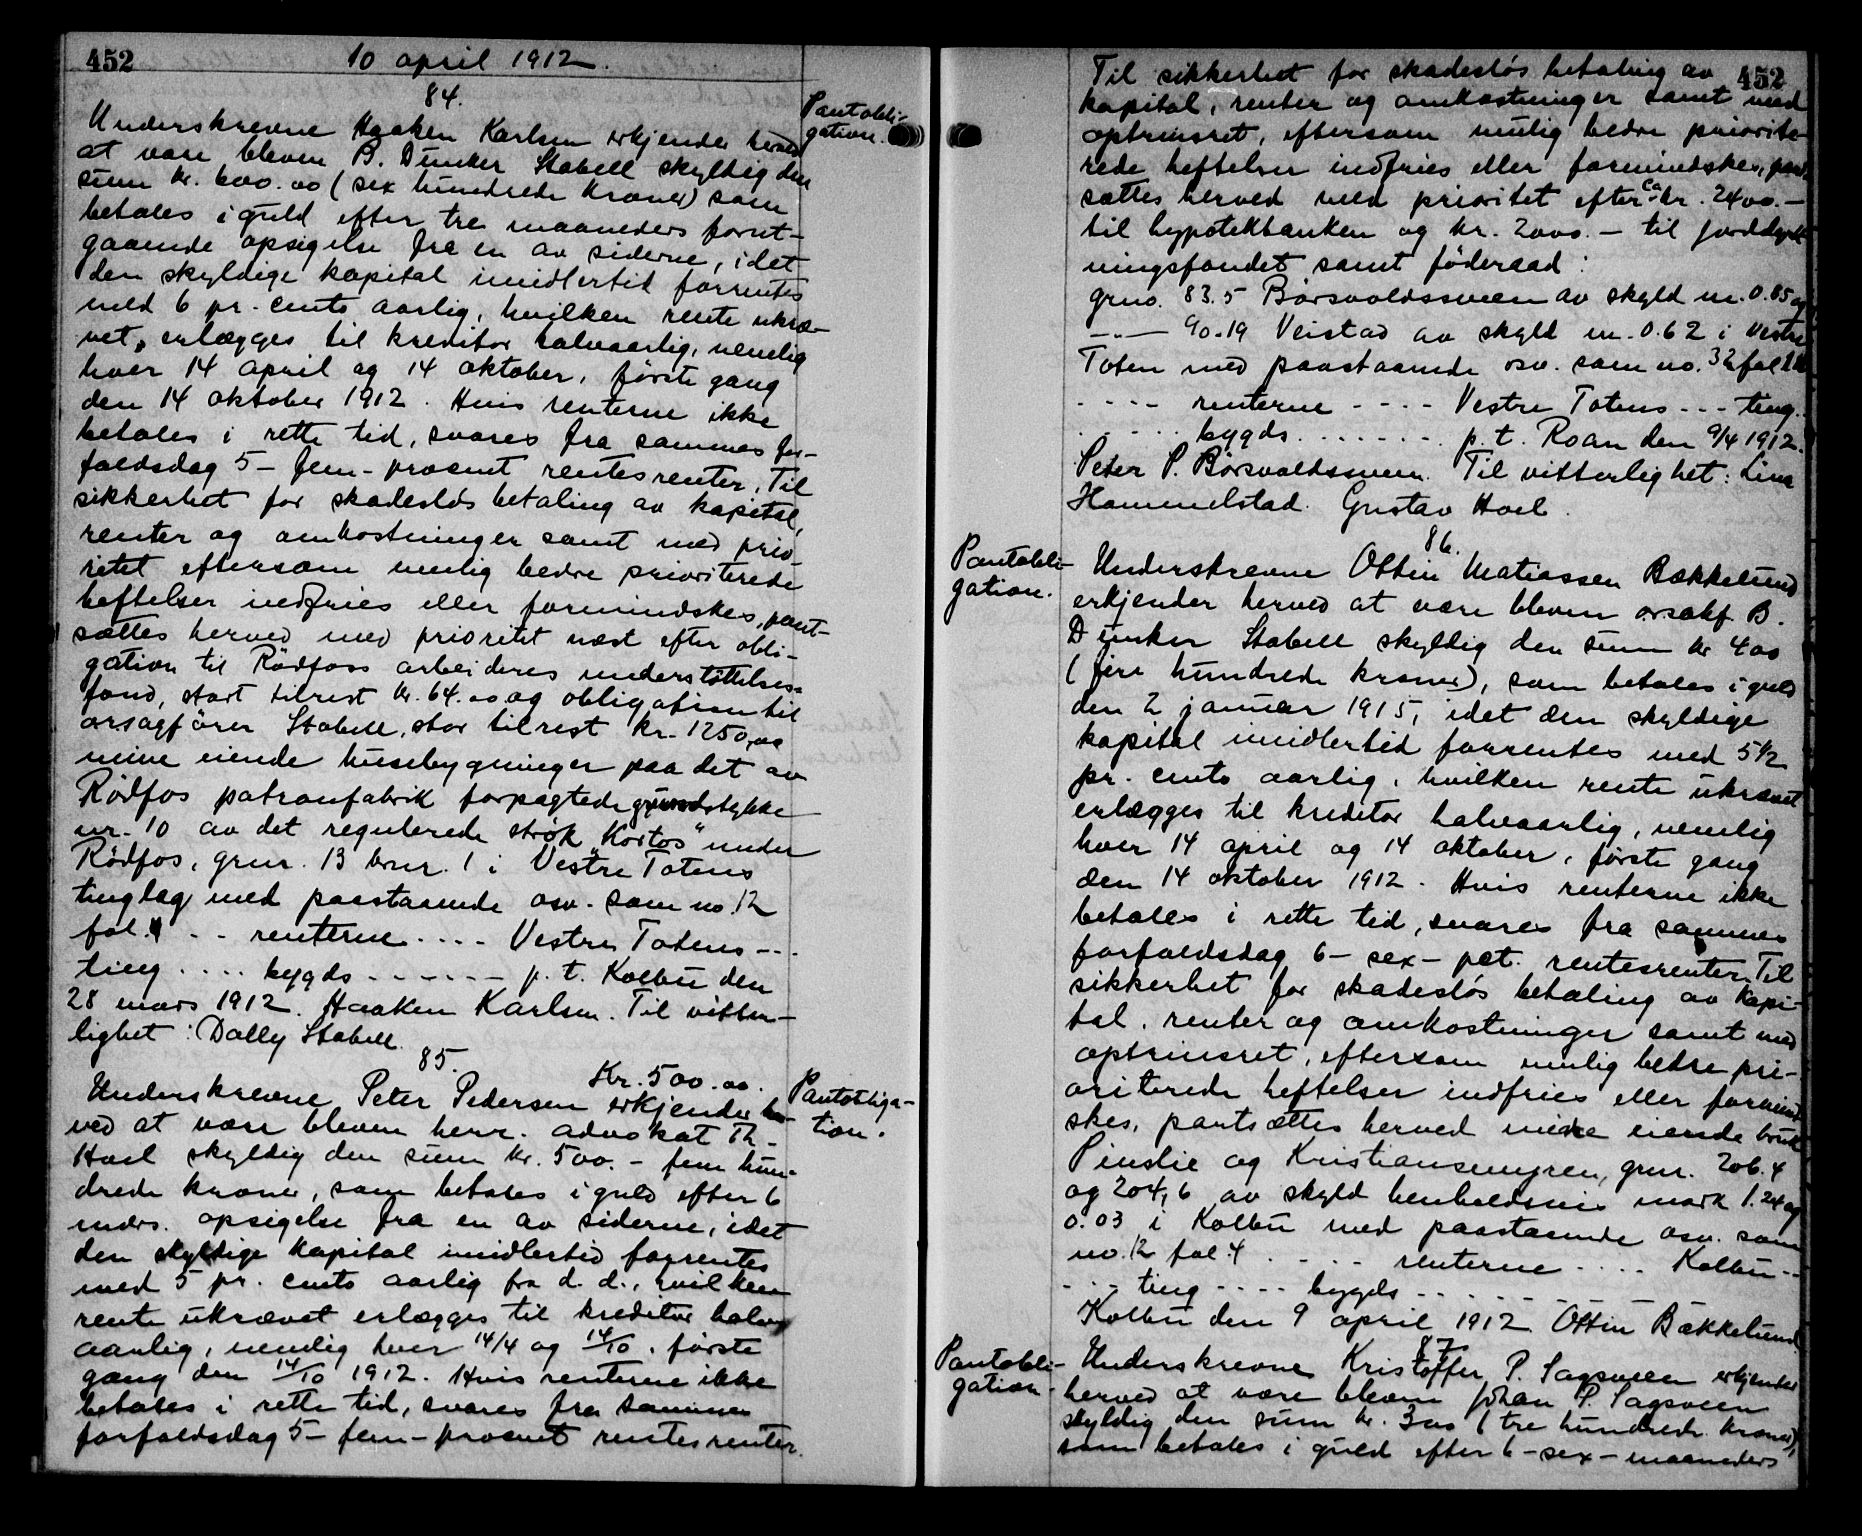 452
10 april 1912.
84.
Pantobli-
gation.
Underskrevne Haaken Karlsen erkjender herved
at være bleven B. Dunker Stabell skyldig den
sum kr. 600.00 (sex hundrede kroner) som
betales i guld efter tre maaneders forut-
gaaende opsigelse fra en av siderne, idet
den skyldige kapital imidlertid forrentes
med 6 pr. cents aarlig, hvilken rente ukræ-
vet, erlægges til kreditor halvaarlig, nemlig
hver 14 april og 14 oktober, første gang
den 14 oktober 1912. Hvis renterne ikke
betales i rette tid, svares fra sammes for-
faldsdag 5 - fem - procent rentesrenter. Til
sikkerhet for skadesløs betaling av kapital,
renter og omkostninger samt med prio-
ritet eftersom mulig bedre prioriterede
heftelser indfries eller formindskes, pant-
sættes herved med prioritet næst efter obli-
gation til Rødfoss arbeideres understøttelses-
fond, stort tilrest kr. 64.00 og obligation til
orsagfører Stabell, stor tilrest kr. 1250,00
mine eiende husebygninger paa det av
Rødfos patronfabrik forpagtede grundstykke
nr. 10 av det regulerede strøk "Kortos" under
Rødfos, grnr. 13 brnr. 1 i Vestre Totens
tinglag med paastaaende osv. som no. 12
fol. 4 - - renterne - - - - Vestre Totens - - -
ting . . . . bygds - - - - - - p. t. Kolbu den
28 mars 1912. Haaken Karlsen. Til vitter-
lighet: Dolly Stabell.
85.
Kr. 500.00.
Pantobliga-
tion.
Underskrevne Peter Pedersen erkjender her-
ved at være bleven herr. advokat Th.
Hoel skyldig den sum kr. 500.- fem hun-
drede kroner, som betales i guld efter 6
mdrs. opsigelse fra en av siderne, idet
den skyldige kapital imidlertid forrentes
med 5 pr. cents aarlig fra d. d., hvilken
rente ukrævet erlægges til kreditor halv-
aarlig, nemlig hver 14/4 og 14/10, første
gang den 14/10 1912. Hvis renterne ikke
betales i rette tid, svares fra sammes
forfaldsdag 5 - fem - procent rentesrenter.
452
Til sikkerhet for skadesløs betaling av
kapital, renter og omkostninger samt med
optrinsret, eftersom mulig bedre priorite-
rede heftelser indfries eller formindskes, pant-
sættes herved med prioritet efter ca kr. 2400.-
til hypotekbanken og kr. 2000.- til jorddyrk-
ningsfondet samt föderaad:
grno. 83.5 Børsvoldssveen av skyld m. 0.85 og
-"- 90.19 Veistad av skyld m. 0.62 i Vestre
Toten med paastaaende osv. som no. 32 fol
- - - - renterne - - - - Vestre Totens - - - ting-
. . . . . bygds . . . . . . . p. t. Roan den 9/4 1912.
Peter P. Børsvoldssveen. Til vitterlighet: Lina
Hammelstad. Gustav Hoel.
86.
Pantobli-
gation.
Underskrevne Ottin Matiassen Bækkelund
erkjender herved at være bleven orsakf. B.
Dunker Stabell skyldig den sum kr 400
(fire hundrede kroner), som betales i guld
den 2 januar 1915, idet den skyldige
kapital imidlertid forrentes med 5 1/2
pr. cents aarlig, hvilken rente ukrævet
erlægges til kreditor halvaarlig, nemlig
hver 14 april og 14 oktober, første gang
den 14 oktober 1912. Hvis renterne ikke
betales i rette tid, svares fra sammes
forfaldsdag 6 - sex - pct. rentesrenter. Til
sikkerhet for skadesløs betaling av kapi-
tal, renter og omkostninger samt med
optrinsret, eftersom mulig bedre pri-
oriterede heftelser indfries eller formind-
skes, pantsættes herved mine eiende bruk
Pinslie og Kristiansenyren, grnr. 206.4
og 204,6 av skyld henholdsvis mark 1.24 og
0.03 i Kolbu med paastaaende osv. som
no. 12 fol. 4 . . - - renterne . . . . Kolbu - -
- - - ting - - - - bygds - - - - - - - -
Kolbu den 9 april 1912. Ottin Bækkelund.
87
Pantobli-
gation.
Underskrevne Kristoffer P. Sagsveen erkjender
herved at være bleven Johan P. Sagsveen
skyldig den sum kr. 300 (tre hundrede kroner),
som betales i guld efter 6 - sex - maaneders